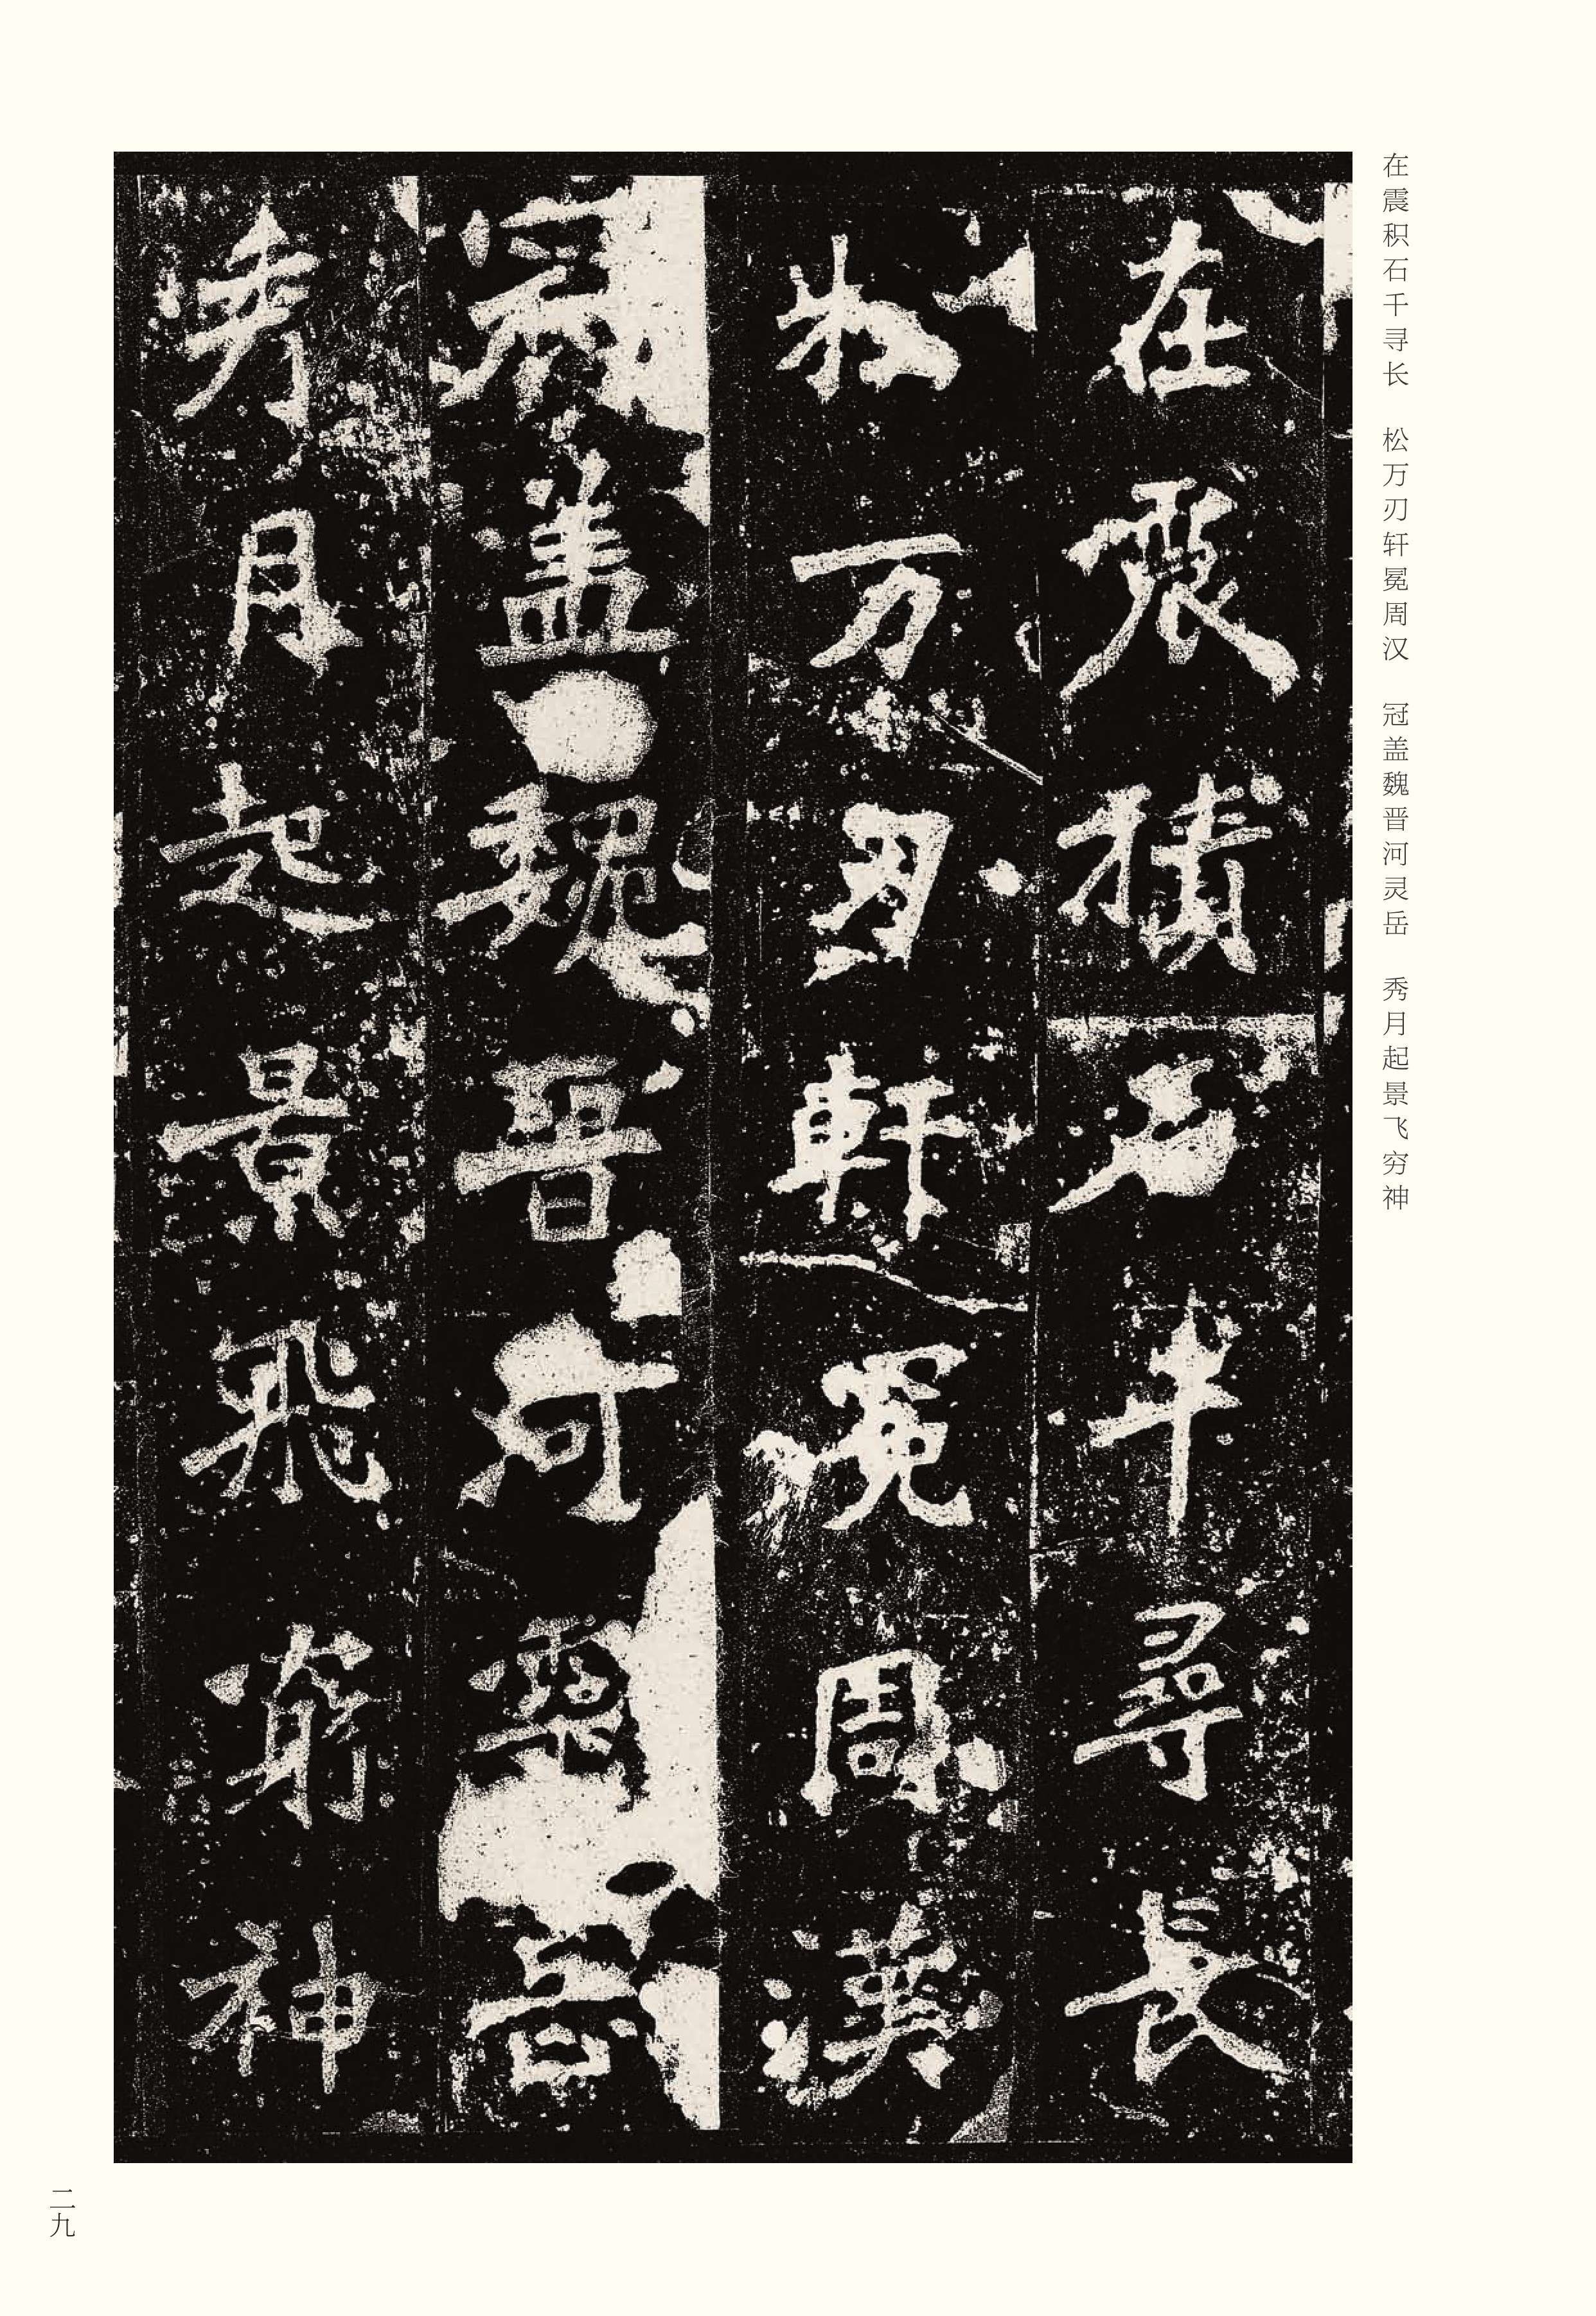 在震积石千寻长 松万刃轩冕周汉 冠盖魏晋河灵岳 秀月起景飞穷神
在震積石千尋長
松万刃軒冕周漢
冠盖魏晉河靈岳
秀月起景飛窮神
二九